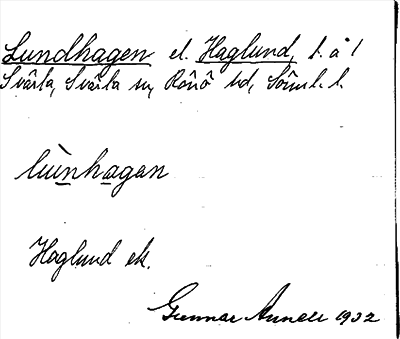 Lundhagen el. Haglund, t. å 1
Svärta, Svärta sn, Rönö hd, Söml. l.
lu̇̀nhagan
Haglund ek.
Gunnar Annell 1932